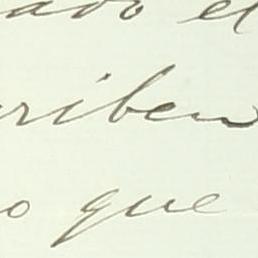 ado el
riben
o que